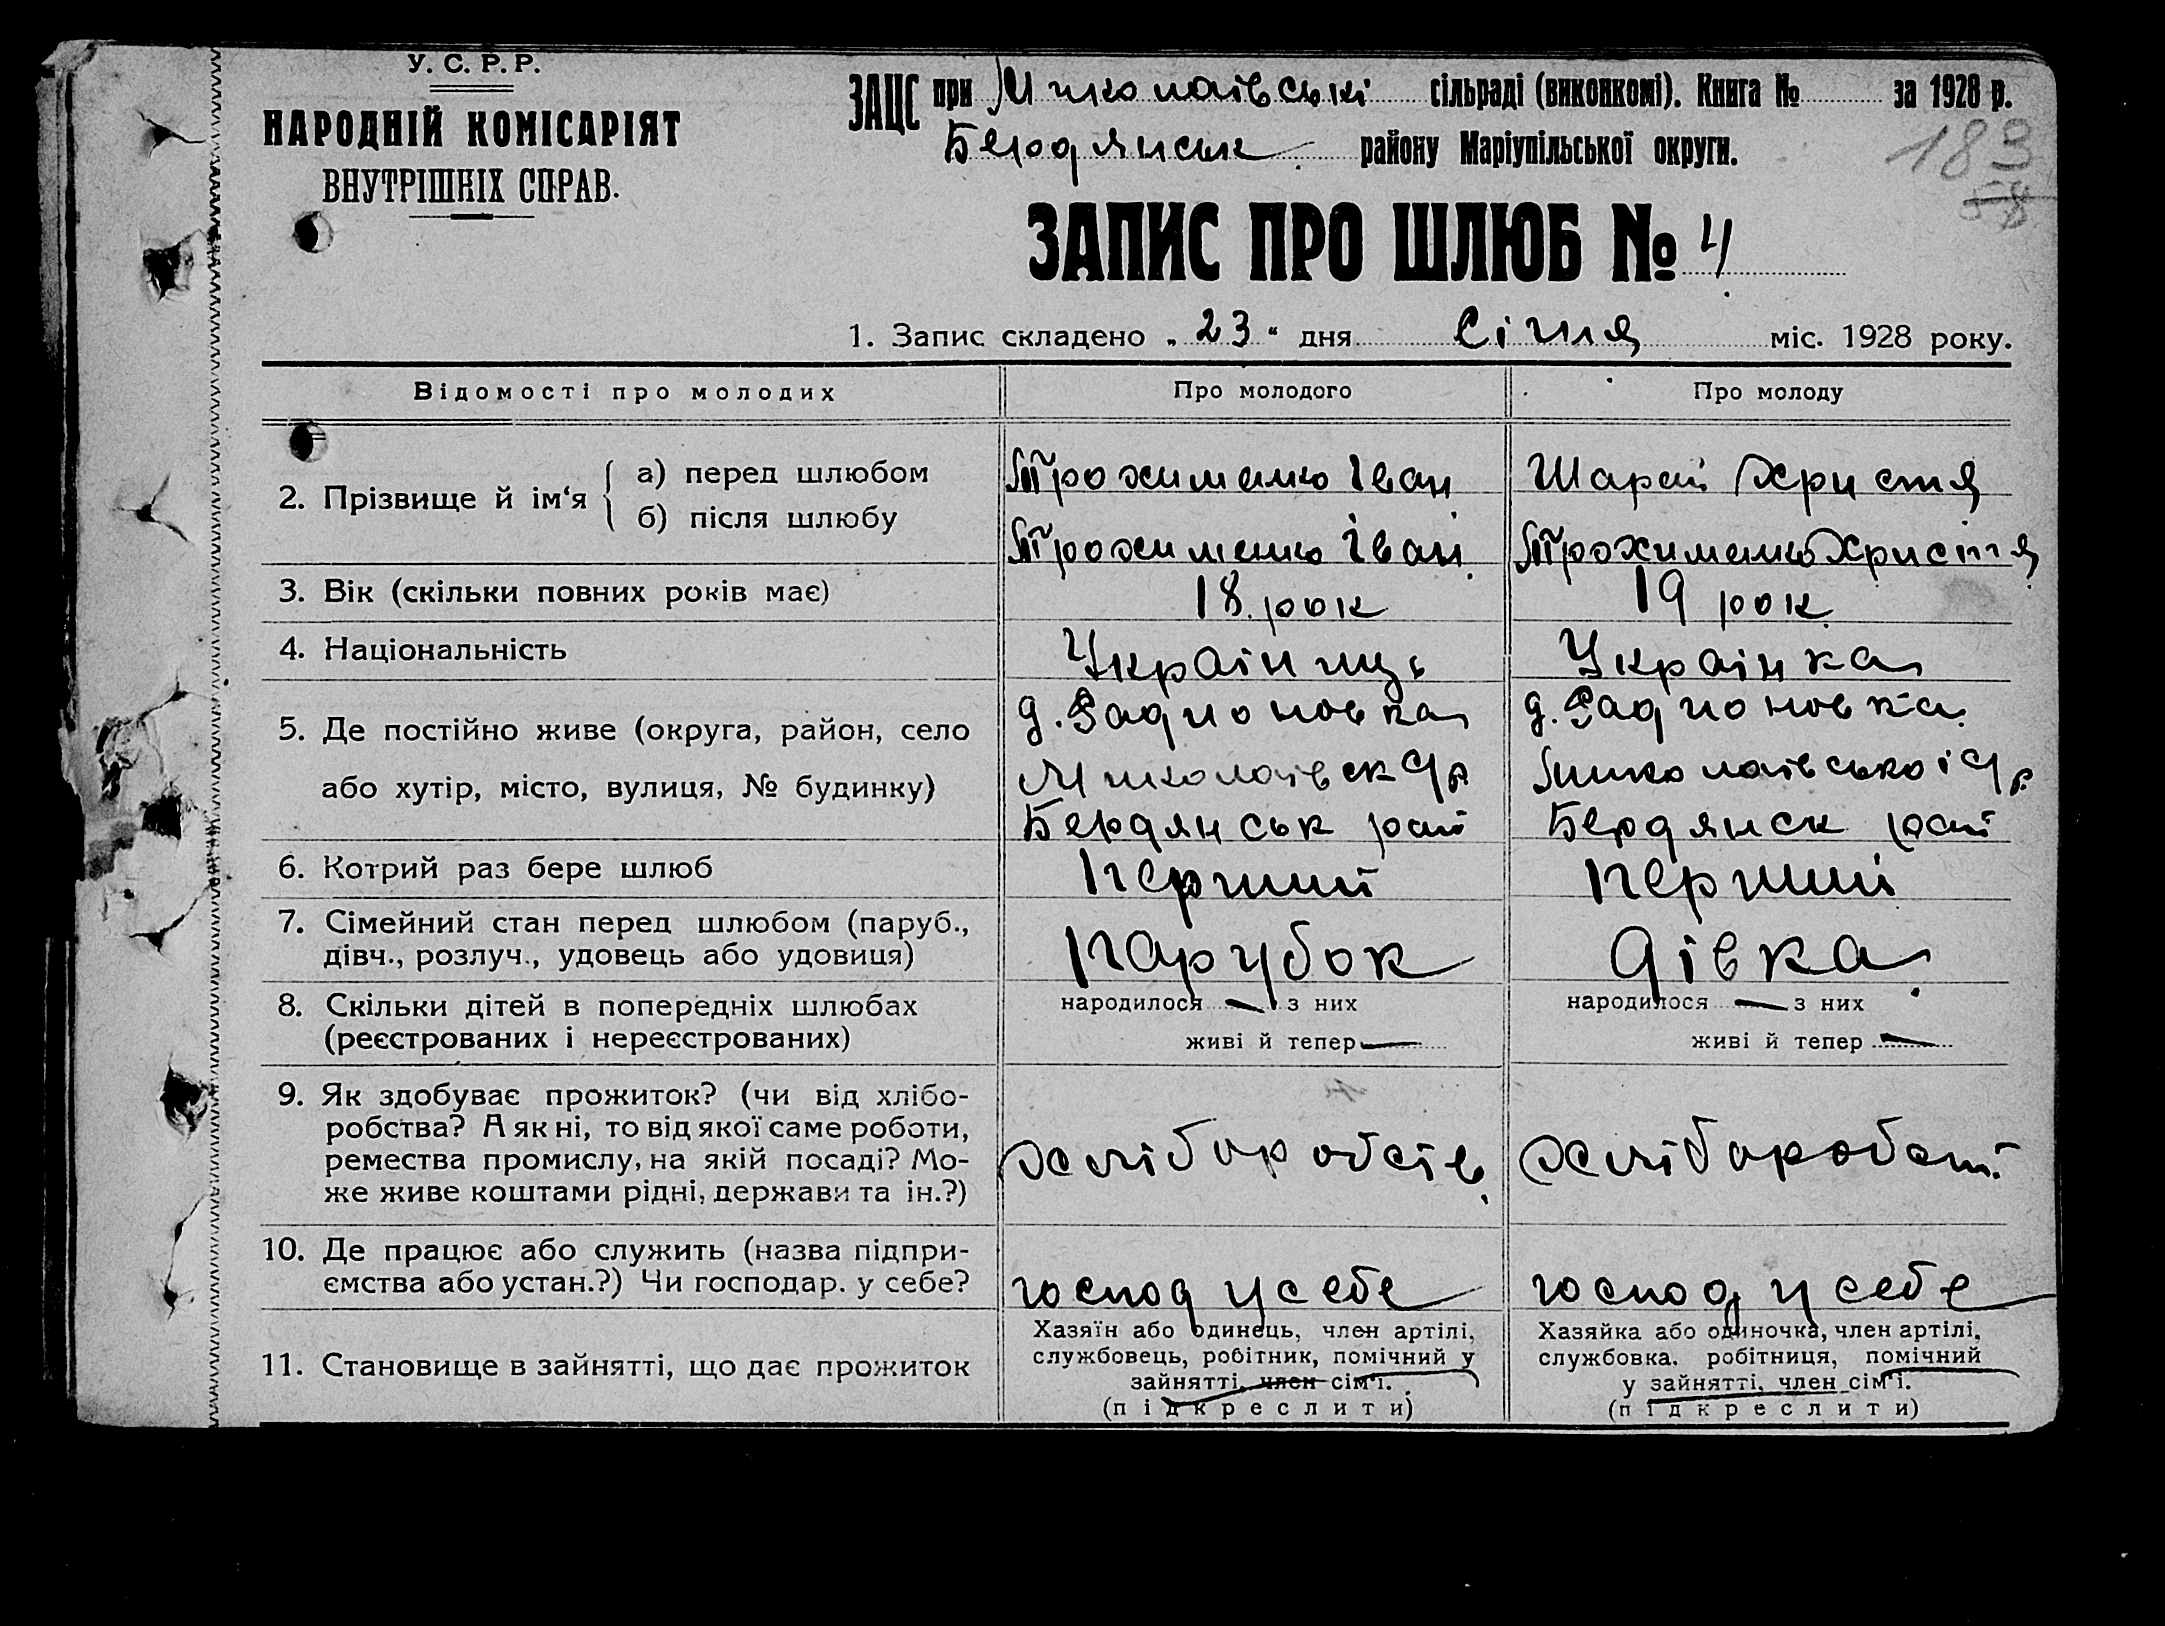 У. С. Р. Р.
НАРОДНІЙ КОМІСАРІЯТ
ВНУТРІШНІХ СПРАВ.
ЗАЦС при Миколаївські сільраді (виконкомі). Книга № за 1928 р.
Бердянськ району Маріупільської округи.
183
58
ЗАПИС ПРО ШЛЮБ № 4
1. Запис складено „ 23 “ дня Січня міс. 1928 року.
Відомості про молодих Про молодого Про молоду
2. Прізвище й ім‘я { а) перед шлюбом Трохименко Іван Шарай Христя
б) після шлюбу Трохименко Іван Трохименко Христя
3. Вік (скільки повних років має) 18 рок 19 рок
4. Національність Українць Українка
5. Де постійно живе (округа, район, село д. Радионовка д. Радионовка
або хутір, місто, вулиця, № будинку) Миколаївск Миколаївської
Бердянськ рай Бердянск рай
6. Котрий раз бере шлюб перший перший
7. Сімейний стан перед шлюбом (паруб.,
дівч., розлуч., удовець або удовиця) парубок дівка
8. Скільки дітей в попередніх шлюбах народилося — з них народилося — з них
(реєстрованих і нереєстрованих) живі й тепер — живі й тепер —
9. Як здобуває прожиток? (чи від хлібо-
робства? А як ні, то від якої саме роботи,
ремества промислу, на якій посаді? Мо- хліборобств
же живе коштами рідні, держави та ін.?)
10. Де працює або служить (назва підпри-
ємства або устан.?) Чи господар. у себе? господ у себе господ у себе
11. Становище в зайнятті, що дає прожиток
Хазяїн або одинець, член артілі,
службовець, робітник, помічний у
зайнятті, член сім‘ї.
(підкреслити)
Хазяйка або одиночка, член артілі,
службовка. робітниця, помічний
у зайнятті, член сім‘ї.
(підкреслити)